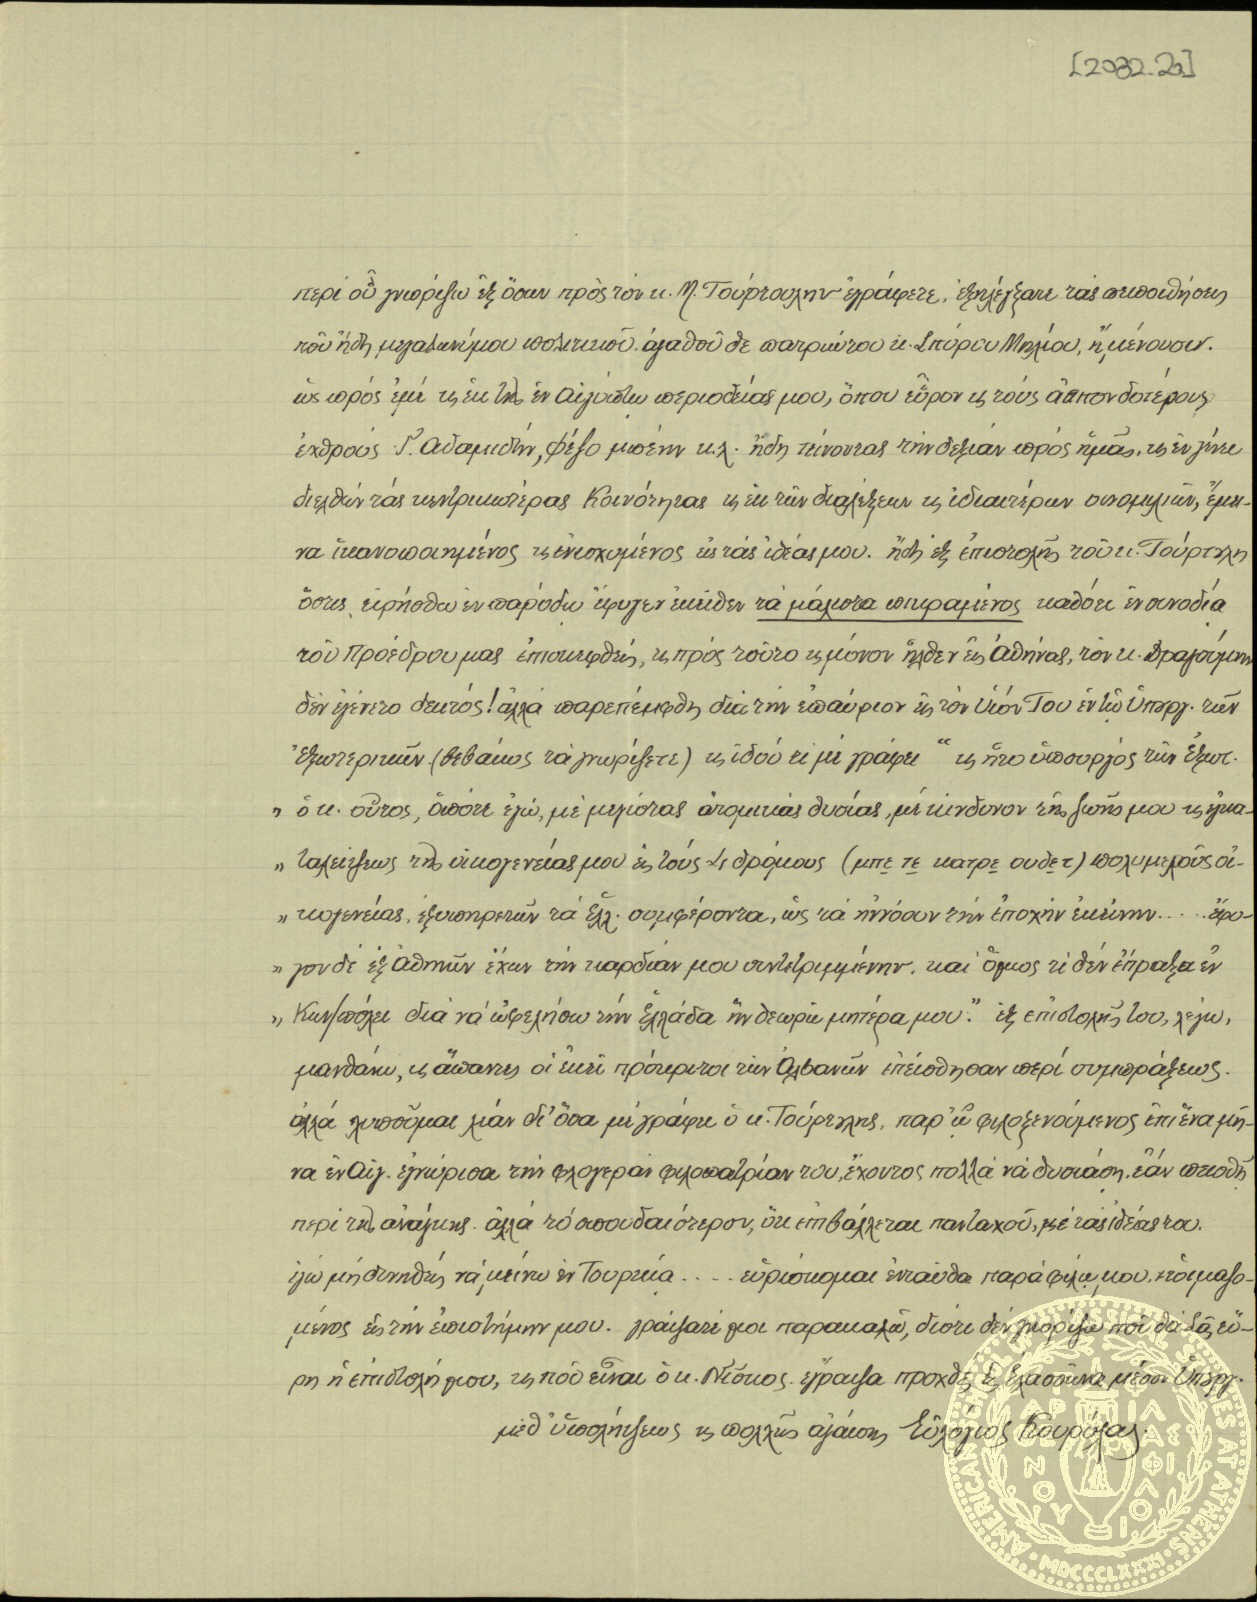 [2032.2α]
περί οὗ γνωρίζω ἐξ ὅσων πρός τόν κ. Μ. Τούρτουλην ἐγράφετε, ἐξηλέγξατε τάς πεποιθήσεις
τοῦ ἤδη μεγαλωνύμου πολιτικοῦ ἀγαθοῦ δέ πατριώτου κ. Σπύρου Μηλίου, ἤ μένουσιν.
ὡς πρός ἐμέ ϗ ἐκ τῆς ἐν Αἰγύπτῳ περιοδείας μου, ὅπου εὗρον ϗ τούς ἀσπονδοτέρους
ἐχθρούς Γ. Ἀδαμιδήν, Φέζο μπέην κλ. ἤδη τείνοντας τήν δεξιάν πρός ἡμᾶς, ϗ ἐν γένει
διελθών τάς κεντρικωτέρας Κοινότητας ϗ ἐκ τῶν διαλέξεων ϗ ἰδιαιτέρων συνομιλιῶν, ἔμει-
να ἱκανοποιημένος ϗ ἐνισχυμένος εἰς τάς ἰδέας μου. ἤδη ἐξ ἐπιστολῆς τοῦ κ. Τούρτουλη
ὅστις, εἰρήσθω ἐν παρόδῳ ἔφυγεν ἐκεῖθεν τά μάλιστα πικραμένος καθότι ἐν συνοδίᾳ
τοῦ Προέδρου μας ἐπισκεφθείς, ϗ πρός τοῦτο ϗ μόνον ἦλθεν εἰς Ἀθήνας, τόν κ. Δραγούμην
δέν ἐγένετο δεκτός! ἀλλά παρεπέμφθη διά τήν ἐπαύριον εἰς τόν Υἱόν Του ἐν τῷ Ὑπουργ. τῶν
Ἐξωτερικῶν (βεβαίως τά γνωρίζετε) ϗ ἰδού τί μέ γράφει " ϗ ἦτο ὑπουργός τῶν Ἐξωτ.
" ὁ κ. οὗτος, ὁπότε ἐγώ, μέ μεγίστας ἀτομικάς θυσίας, μέ κίνδυνον τῆς ζωῆς μου ϗ ἐγκα-
" ταλείψεως τῆς οἰκογενείας μου εἰς τούς δρόμους (μπε τε κατρε ουδετ) πολυμελοῦς οἰ-
" κογενείας, ἐξυπηρετῶν τά Ἑλλ. συμφέροντα, ὡς τά ἠννόουν τήν ἐποχήν ἐκείνην..... ἔφυ-
" γον δέ ἐξ Ἀθηνῶν ἔχων τήν καρδίαν μου συντετριμμένην. καί ὅμως τί δέν ἔπραξα ἐν
" Κων/πόλει διά νά ὠφελήσω τήν Ἑλλάδα ἥν θεωρῶ μητέρα μου." ἐξ ἐπιστολῆς του, λέγω,
μανθάνω, ϗ ἅπαντες οἱ ἐκεῖ πρόκριτοι τῶν Ἀλβανῶν ἐπείσθησαν περί συμπράξεως.
ἀλλά λυποῦμαι λίαν δι' ὅσα μέ γράφει ὁ κ. Τούρτουλης, παρ' ᾧ φιλοξενούμενος ἐπί ἕνα μῆ-
να ἐν Αἰγ. ἐγνώρισα τήν φλογεράν φιλοπατρίαν του, ἔχοντος πολλά νά θυσιάσῃ, ἐάν πεισθῇ
περί τῆς ἀνάγκης. ἀλλά τό σπουδαιότερον, ὅτι ἐπιβάλλεται πανταχοῦ, μέ τάς ἰδέας του.
ἐγώ μή δυνηθείς νά μείνω ἐν Τουρκίᾳ .... εὑρίσκομαι ἐνταῦθα παρά φίλῳ μου, ἑτοιμαζό-
μενος εἰς τήν ἐπιστήμην μου. γράψατέ μοι παρακαλῶ, διότι δέν γνωρίζω ποῦ θά σᾶς εὕ-
ρῃ ἡ ἐπιστολή μου, ϗ ποῦ εἶναι ὁ κ. Νίκος. ἔγραψα προχθές εἰς Ἐλασσῶνα μέσον Ὑπουργ.
μεθ' ὑπολήψεως ϗ πολλῆς ἀγάπης Εὐλόγιος Κουρίλας
AMERICAN SCHOOL OF CLASSICAL STUDIES AT ATHENS · MDCCCLXXXI ·